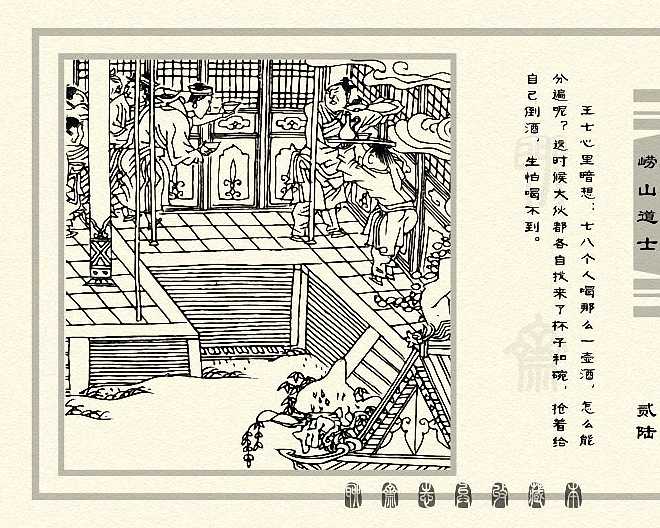 崂山道士
贰陆
王七心里暗想：七八个人喝那么一壶酒，怎么能
分遍呢？这时候大伙都各自找来了杯子和碗，抢着给
自己倒酒，生怕喝不到。